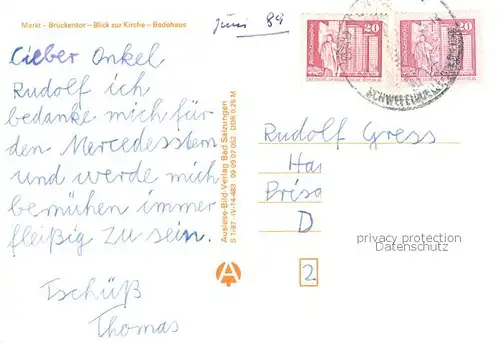 Markt - Brückentor - Blick zur Kirche - Badehaus
Juni 89
Lieber Onkel
Rudolf ich
bedanke mich für
den Mercedesstern
und werde mich
bemühen immer
fleißig zu sein.
Tschüß
Thomas
Auslese-Bild-Verlag Bad Salzungen
S 1/87 · IV-14-483 09 99 07 092 DDR 0,25 M
A
20
20
SCHWEFEL
Rudolf Gress
Ha
Brisa
D
2
privacy protection
Datenschutz